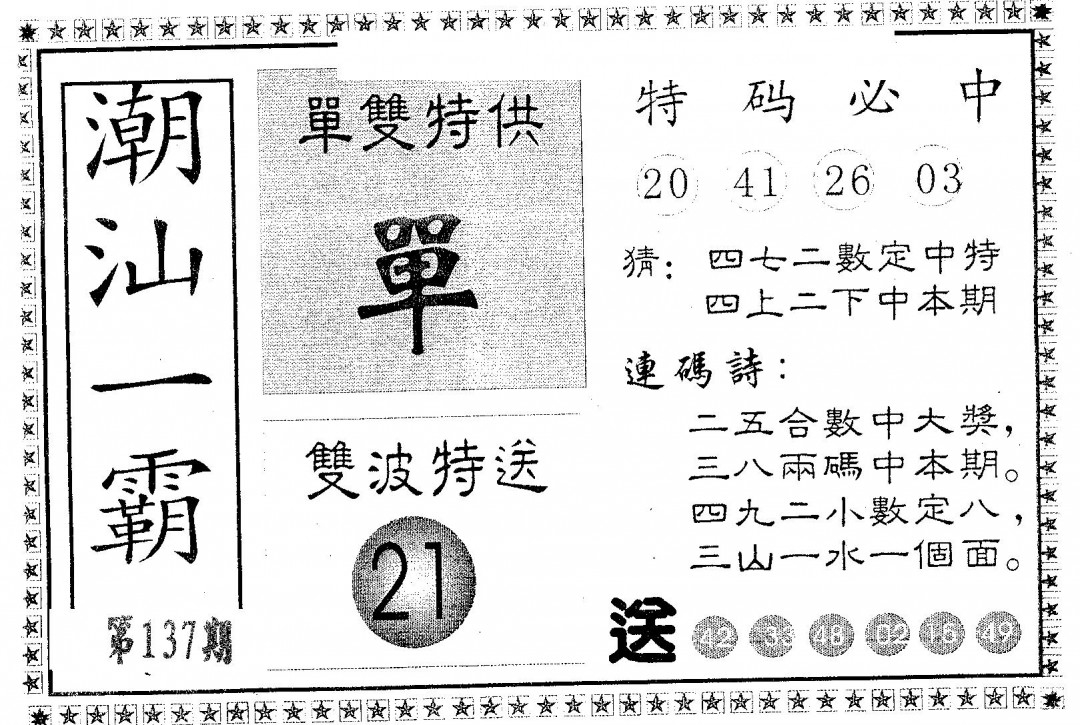 潮汕一霸
第137期
單雙特供
單
雙波特送
21
特码必中
20 41 26 03
猜：四七二數定中特
四上二下中本期
連碼詩：
二五合數中大獎，
三八兩碼中本期。
四九二小數定八，
三山一水一個面。
送 42 33 48 02 15 49